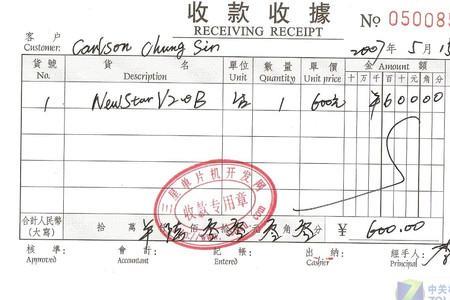 收 款 收 據
RECEIVING RECEIPT
No 050085
客 户
Customer: Carlson Chung Sin
2007 年 5 月 15
貨號 貨 名 單位 數量 單價 金 Amount 額
No. Description Unit Quantity Unit price 十 万 千 百 十 元 角 分
1 NewStar V2.0B 1 600元 ¥60000
三星单片机开发网
收款专用章
.com
合計人民幣
(大寫)
拾 萬 仟 陆 佰 零 零 零 零 ¥ 600.00
核 準: 會 計: 記 帳: 出 纳: 經手人:
Approved Accountant Entered Cashier Principal
中关村
ZOL